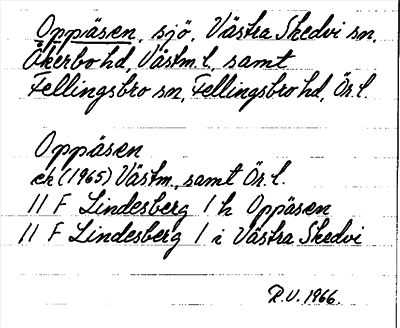 Oppåsen, sjö, Västra Skedvi sn,
Åkerbo hd, Västm. l, samt
Fellingsbro sn, Fellingsbro hd, Ör. l.
Oppåsen
ek (1965) Västm., samt Ör. l.
11 F Lindesberg 1 h Oppåsen
11 F Lindesberg 1 i Västra Skedvi
R.U. 1966.